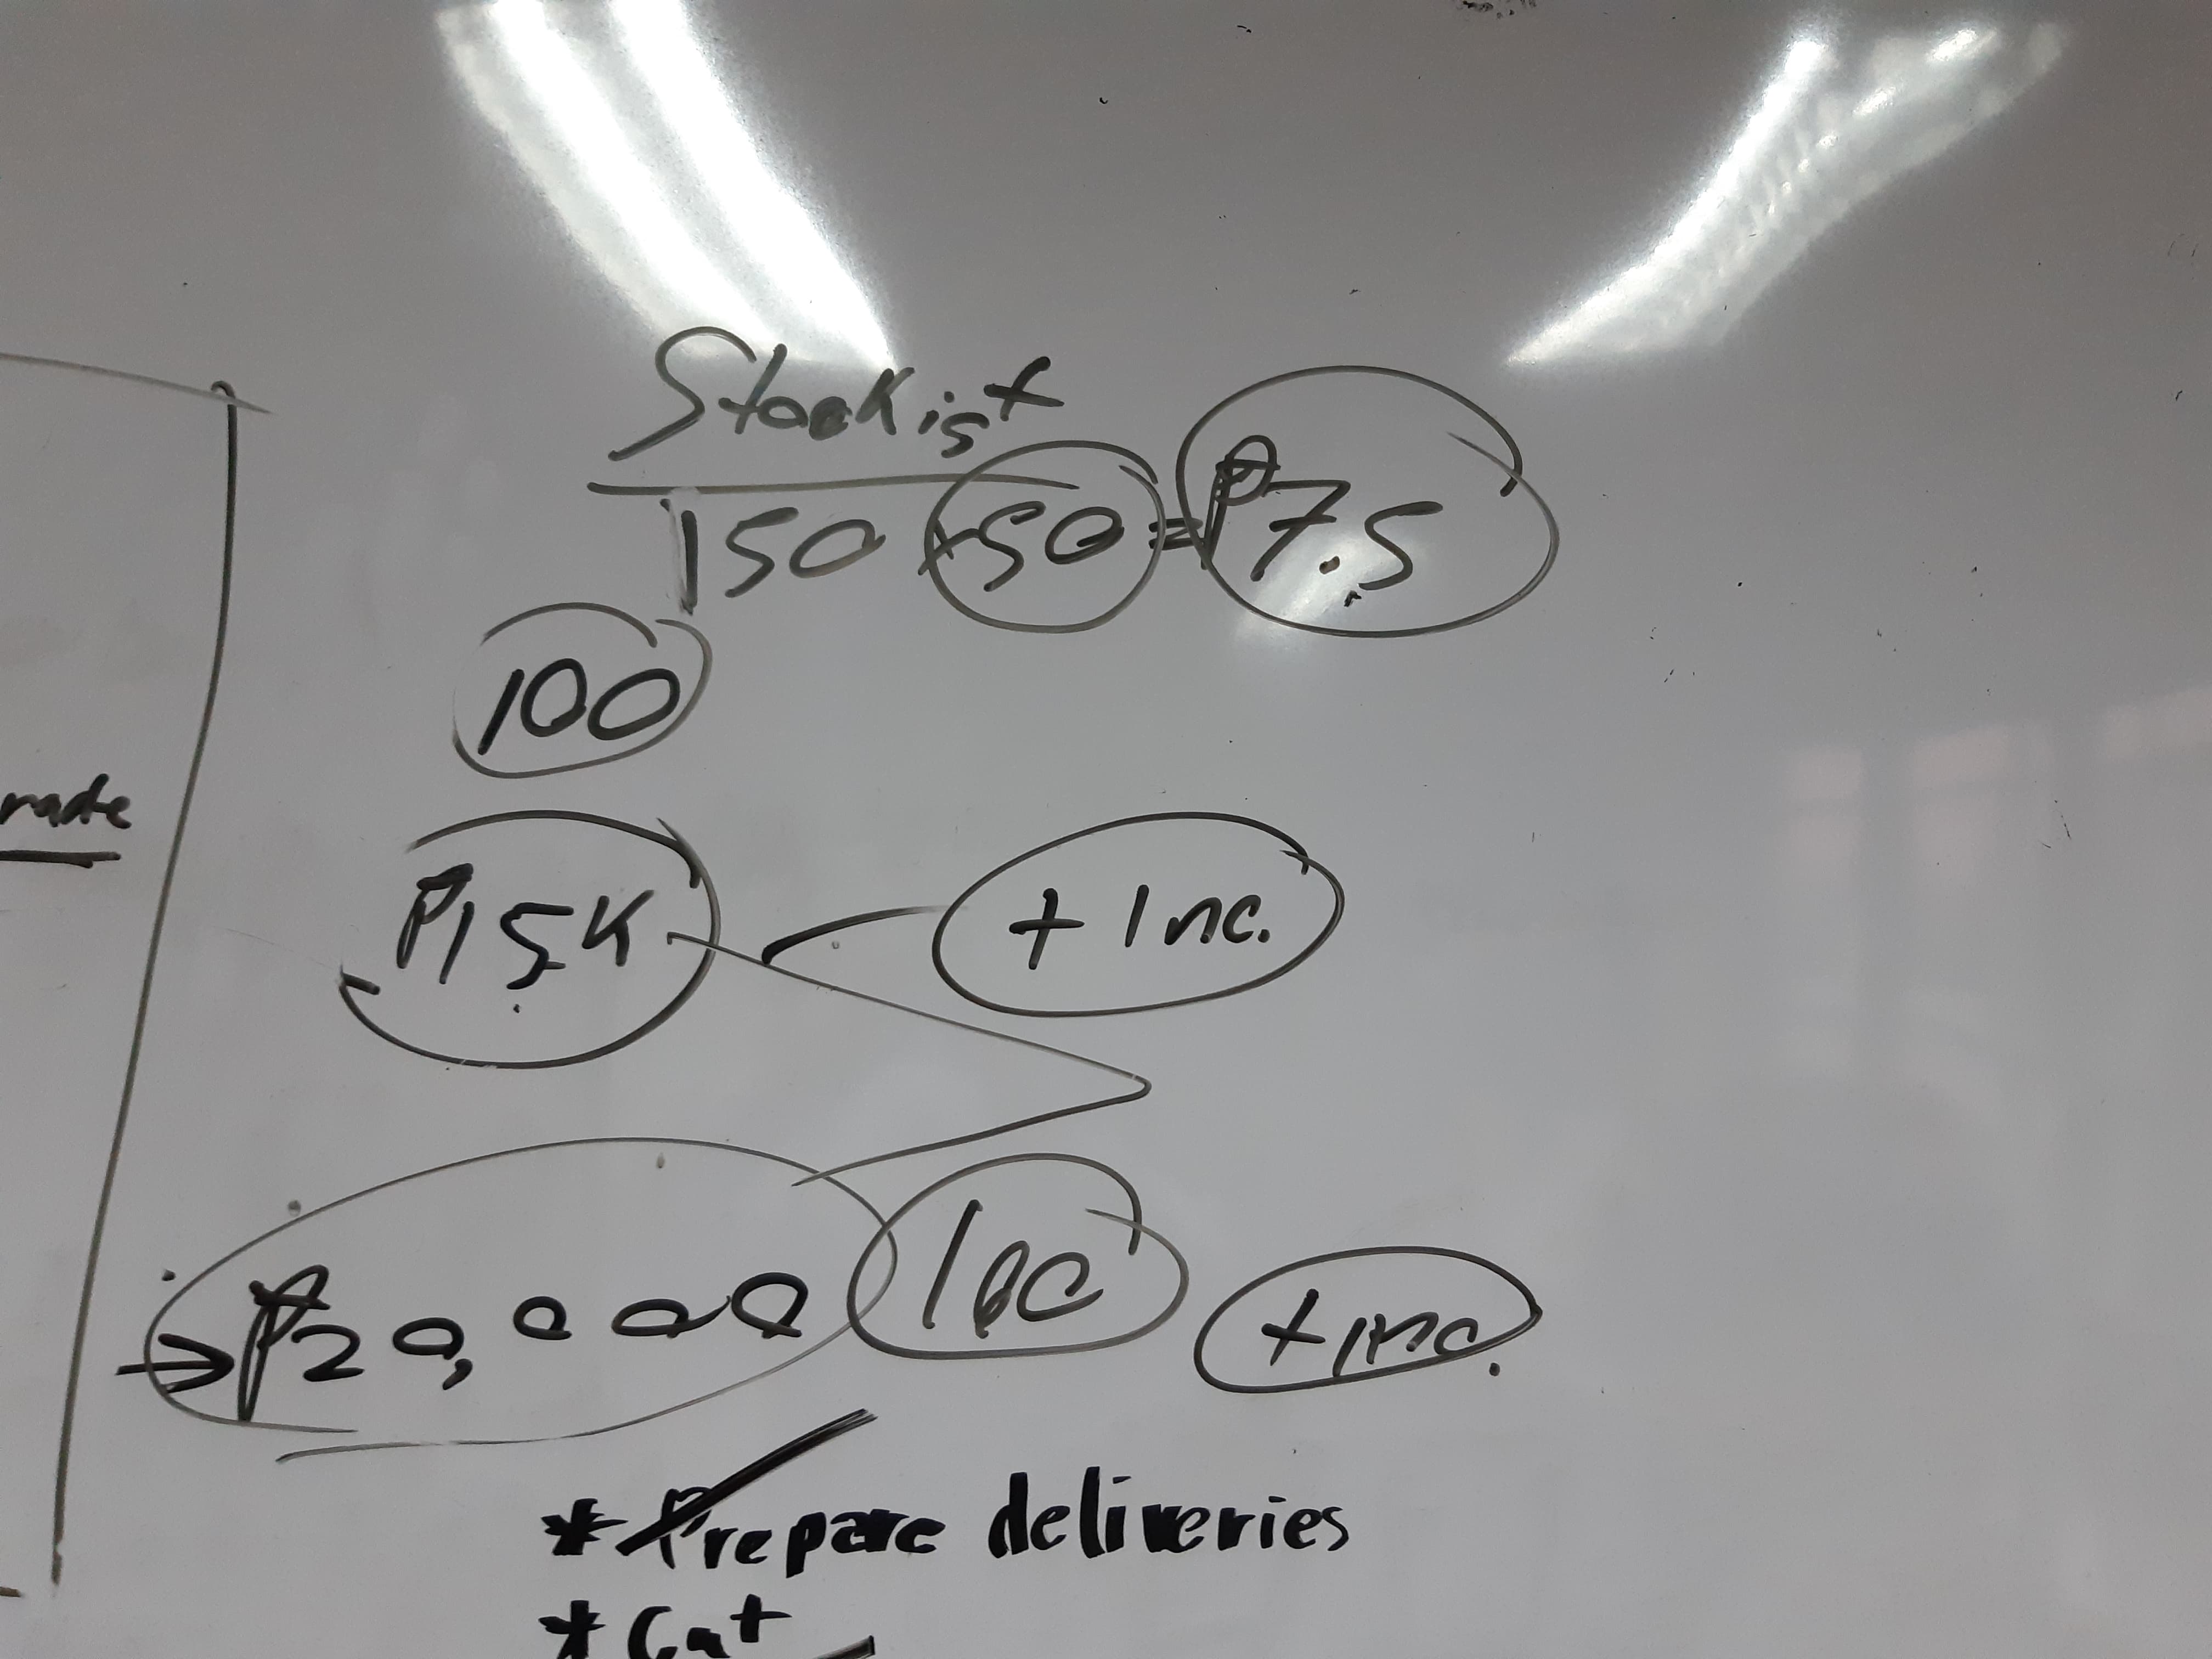 Stockist
150 x 50 = ₱7.5
100
rade
₱15K + Inc.
→ ₱20,000 100 + inc.
* Prepare deliveries
* Cut